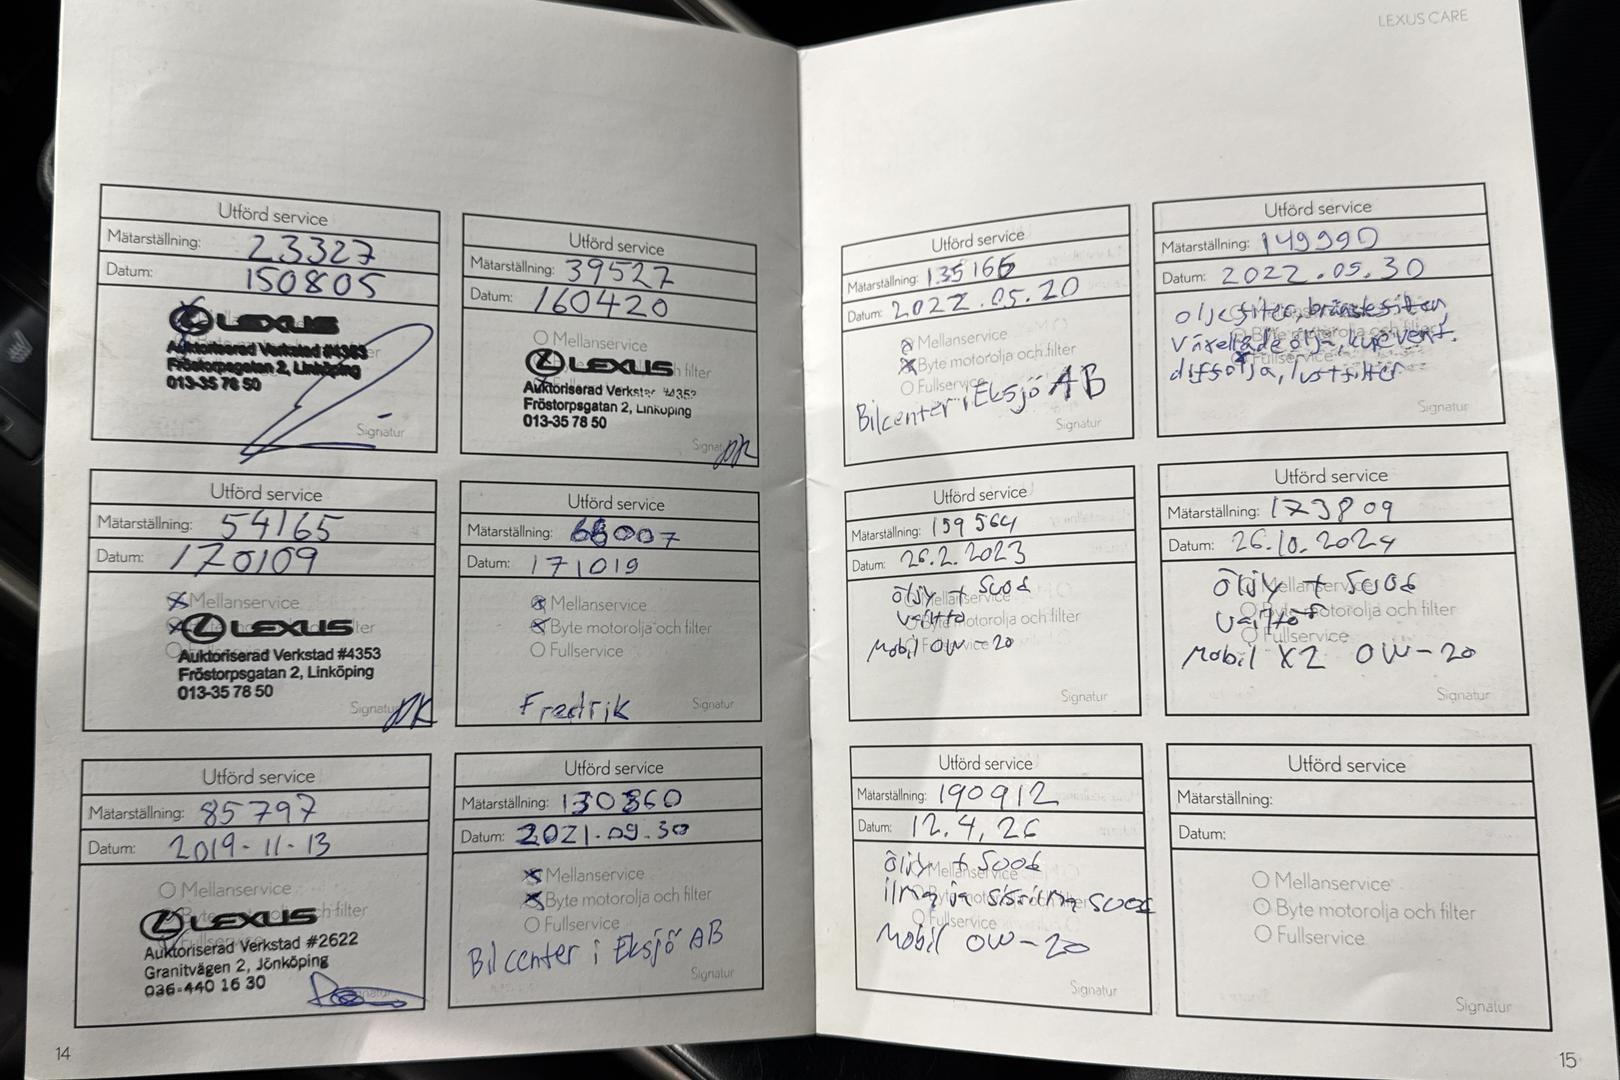 LEXUS CARE
Utförd service
Mätarställning: 23327
Datum: 150805
LEXUS
Auktoriserad Verkstad #4353
Fröstorpsgatan 2, Linköping
013-35 78 50
Signatur
Utförd service
Mätarställning: 39527
Datum: 160420
Mellanservice
LEXUS
filter
Auktoriserad Verkstad #4353
Fröstorpsgatan 2, Linköping
013-35 78 50
Signatur
Utförd service
Mätarställning: 54165
Datum: 170109
Mellanservice
LEXUS
Auktoriserad Verkstad #4353
Fröstorpsgatan 2, Linköping
013-35 78 50
Signatur
Utförd service
Mätarställning: 68007
Datum: 171019
Mellanservice
Byte motorolja och filter
Fullservice
Fredrik
Signatur
Utförd service
Mätarställning: 85797
Datum: 2019-11-13
Mellanservice
LEXUS
Auktoriserad Verkstad #2622
Granitvägen 2, Jönköping
036-440 16 30
Utförd service
Mätarställning: 130360
Datum: 2021.09.30
Mellanservice
Byte motorolja och filter
Fullservice
Bilcenter i Eksjö AB
Signatur
14
Utförd service
Mätarställning: 135166
Datum: 2022.05.20
Mellanservice
Byte motorolja och filter
Fullservice
Bilcenter i Eksjö AB
Signatur
Utförd service
Mätarställning: 149990
Datum: 2022.05.30
oljefilter, bränslefilter,
växellådeolja, kupévent.
diffolja, luftfilter
Signatur
Utförd service
Mätarställning: 159564
Datum: 26.2.2023
öljy + suod
vaihto
Mobil 0W-20
Signatur
Utförd service
Mätarställning: 173809
Datum: 26.10.2024
öljy + suod
vaihto
Mobil X2 0W-20
Signatur
Utförd service
Mätarställning: 190912
Datum: 12.4.26
öljy + suod
ilma ja sisäilma suod
Mobil 0W-20
Signatur
Utförd service
Mätarställning:
Datum:
Mellanservice
Byte motorolja och filter
Fullservice
Signatur
15